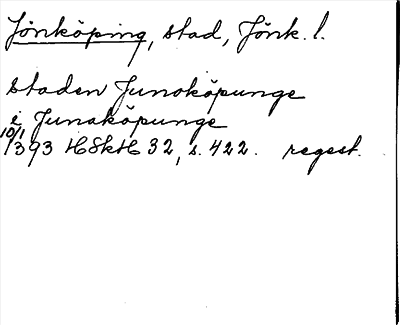 Jönköping, stad, Jönk. l.
staden Junoköpunge
i Junaköpunge
10/1 1393 HSkH 32, s. 422. regest.